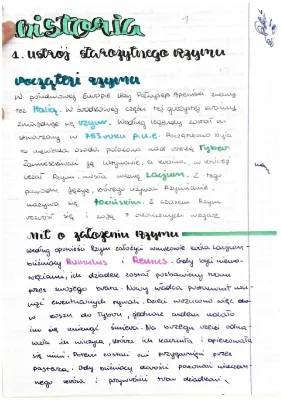 historia
1
1. ustrój starożytnego rzymu
początki rzymu
w południowej Europie leży Półwysep Apeniński zwany
też Italią. W środkowej części tej górzystej krainy
znajduje się rzym. Według legendy został on
w 753 roku p.n.e. Początkowo była
to niewielka osada położona nad rzeką Tybr
Zamieszkiwali ją Latynowie, a kraina, w której
leżał Rzym nosiła nazwę Lacjum. Z tego
powodu język, którego używali Rzymianie
nazywa się łacińskim. Z czasem Rzym
się i
mit o założeniu rzymu
według opowieści Rzym założyli wnukowie króla Lacjum -
bliźniacy Romulus i Remus. Gdy byli niemo-
wlętami, ich dziadek został pozbawiony tronu
przez swojego brata. Nowy władca postanowił usu-
nąć ewentualnych rywali. Dzieci włożono więc do
kosza do Tybru, jednak udało
im się uniknąć śmierci. Na brzegu rzeki odna-
lazła ich wilczyca, która ich karmiła i opiekowała
się nimi. Potem zostali oni przygarnięci przez
pasterza. Gdy bliźniacy dorośli pokonali niecne-
nego króla i przywrócili tron dziadkowi.